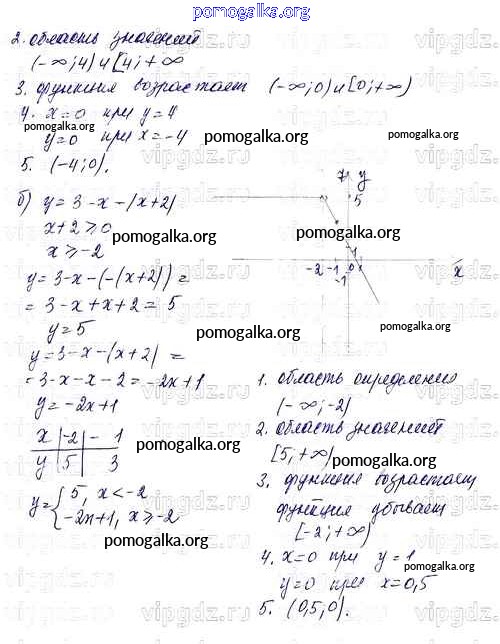 pomogalka.org
2. область значений
(-∞; 4) и [4; +∞
3. функция возрастает (-∞; 0) и [0; +∞)
4. x=0 при y=4
y=0 при x=-4
5. (-4; 0).
б) y = 3-x-|x+2|
x+2≥0
x≥-2
y=3-x-(-(x+2)) =
= 3-x+x+2=5
y=5
y=3-x-(x+2| =
=3-x-x-2=-2x+1
y=-2x+1
x | -2 | - 1
y | 5 | 3
y={5, x<-2
-2x+1, x≥-2
y
5
1
-2 -1 0 x
-1
1. область определения
(-∞; -2)
2. область значений
[5; +∞)
3. функция возрастает
функция убывает
[-2; +∞)
4. x=0 при y=1
y=0 при x=0,5
5. (0,5; 0).
pomogalka.org
pomogalka.org
pomogalka.org
pomogalka.org
pomogalka.org
pomogalka.org
pomogalka.org
pomogalka.org
pomogalka.org
pomogalka.org
pomogalka.org